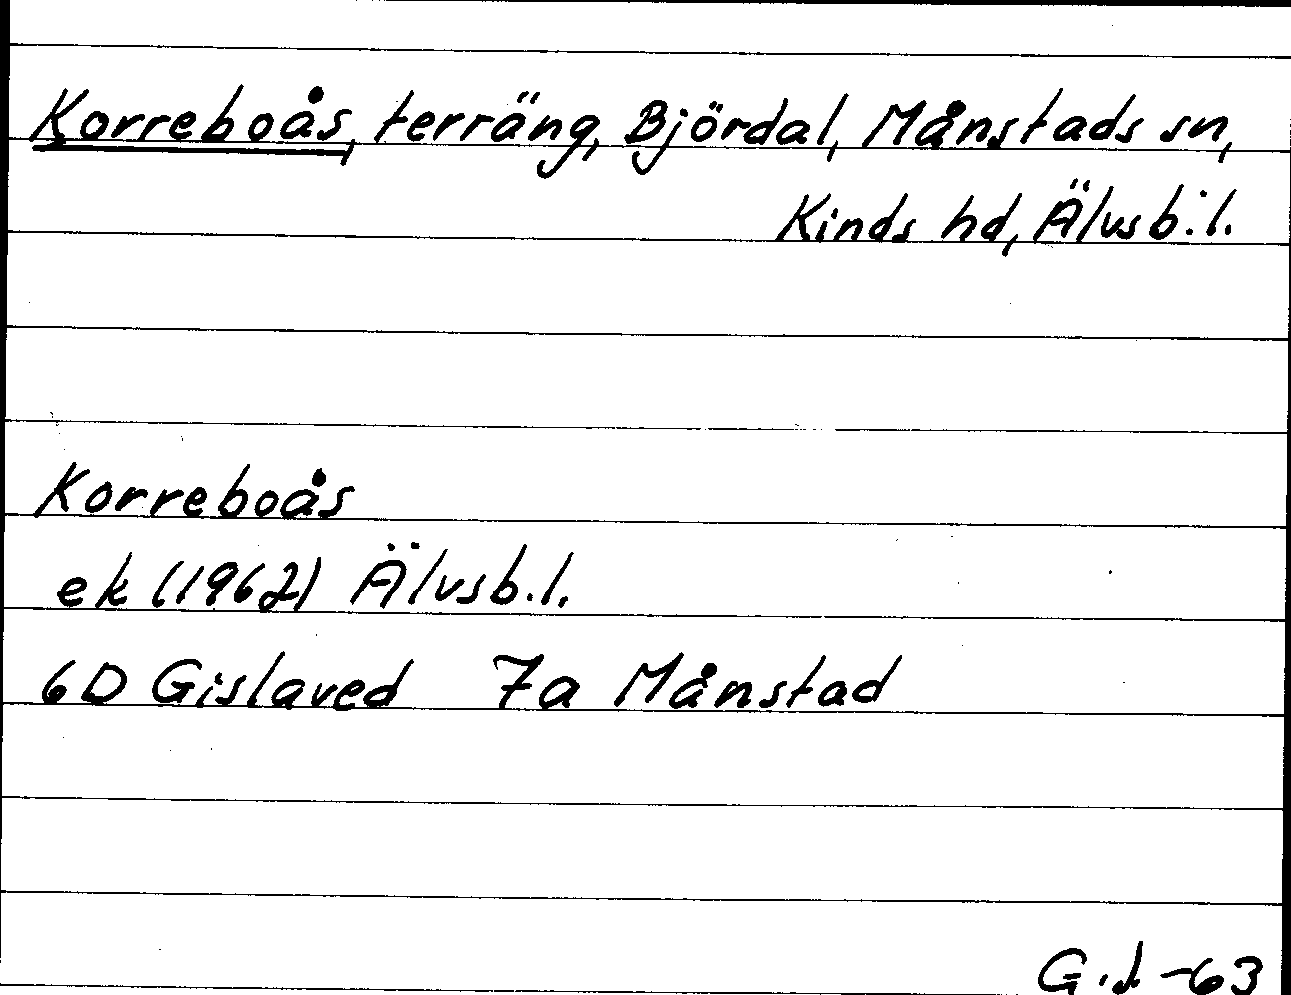 Korreboås, terräng, Björdal, Månstads sn,
Kinds hd, Älvsb. l.
Korreboås
ek (1962) Älvsb. l.
6D Gislaved 7a Månstad
G.d. -63